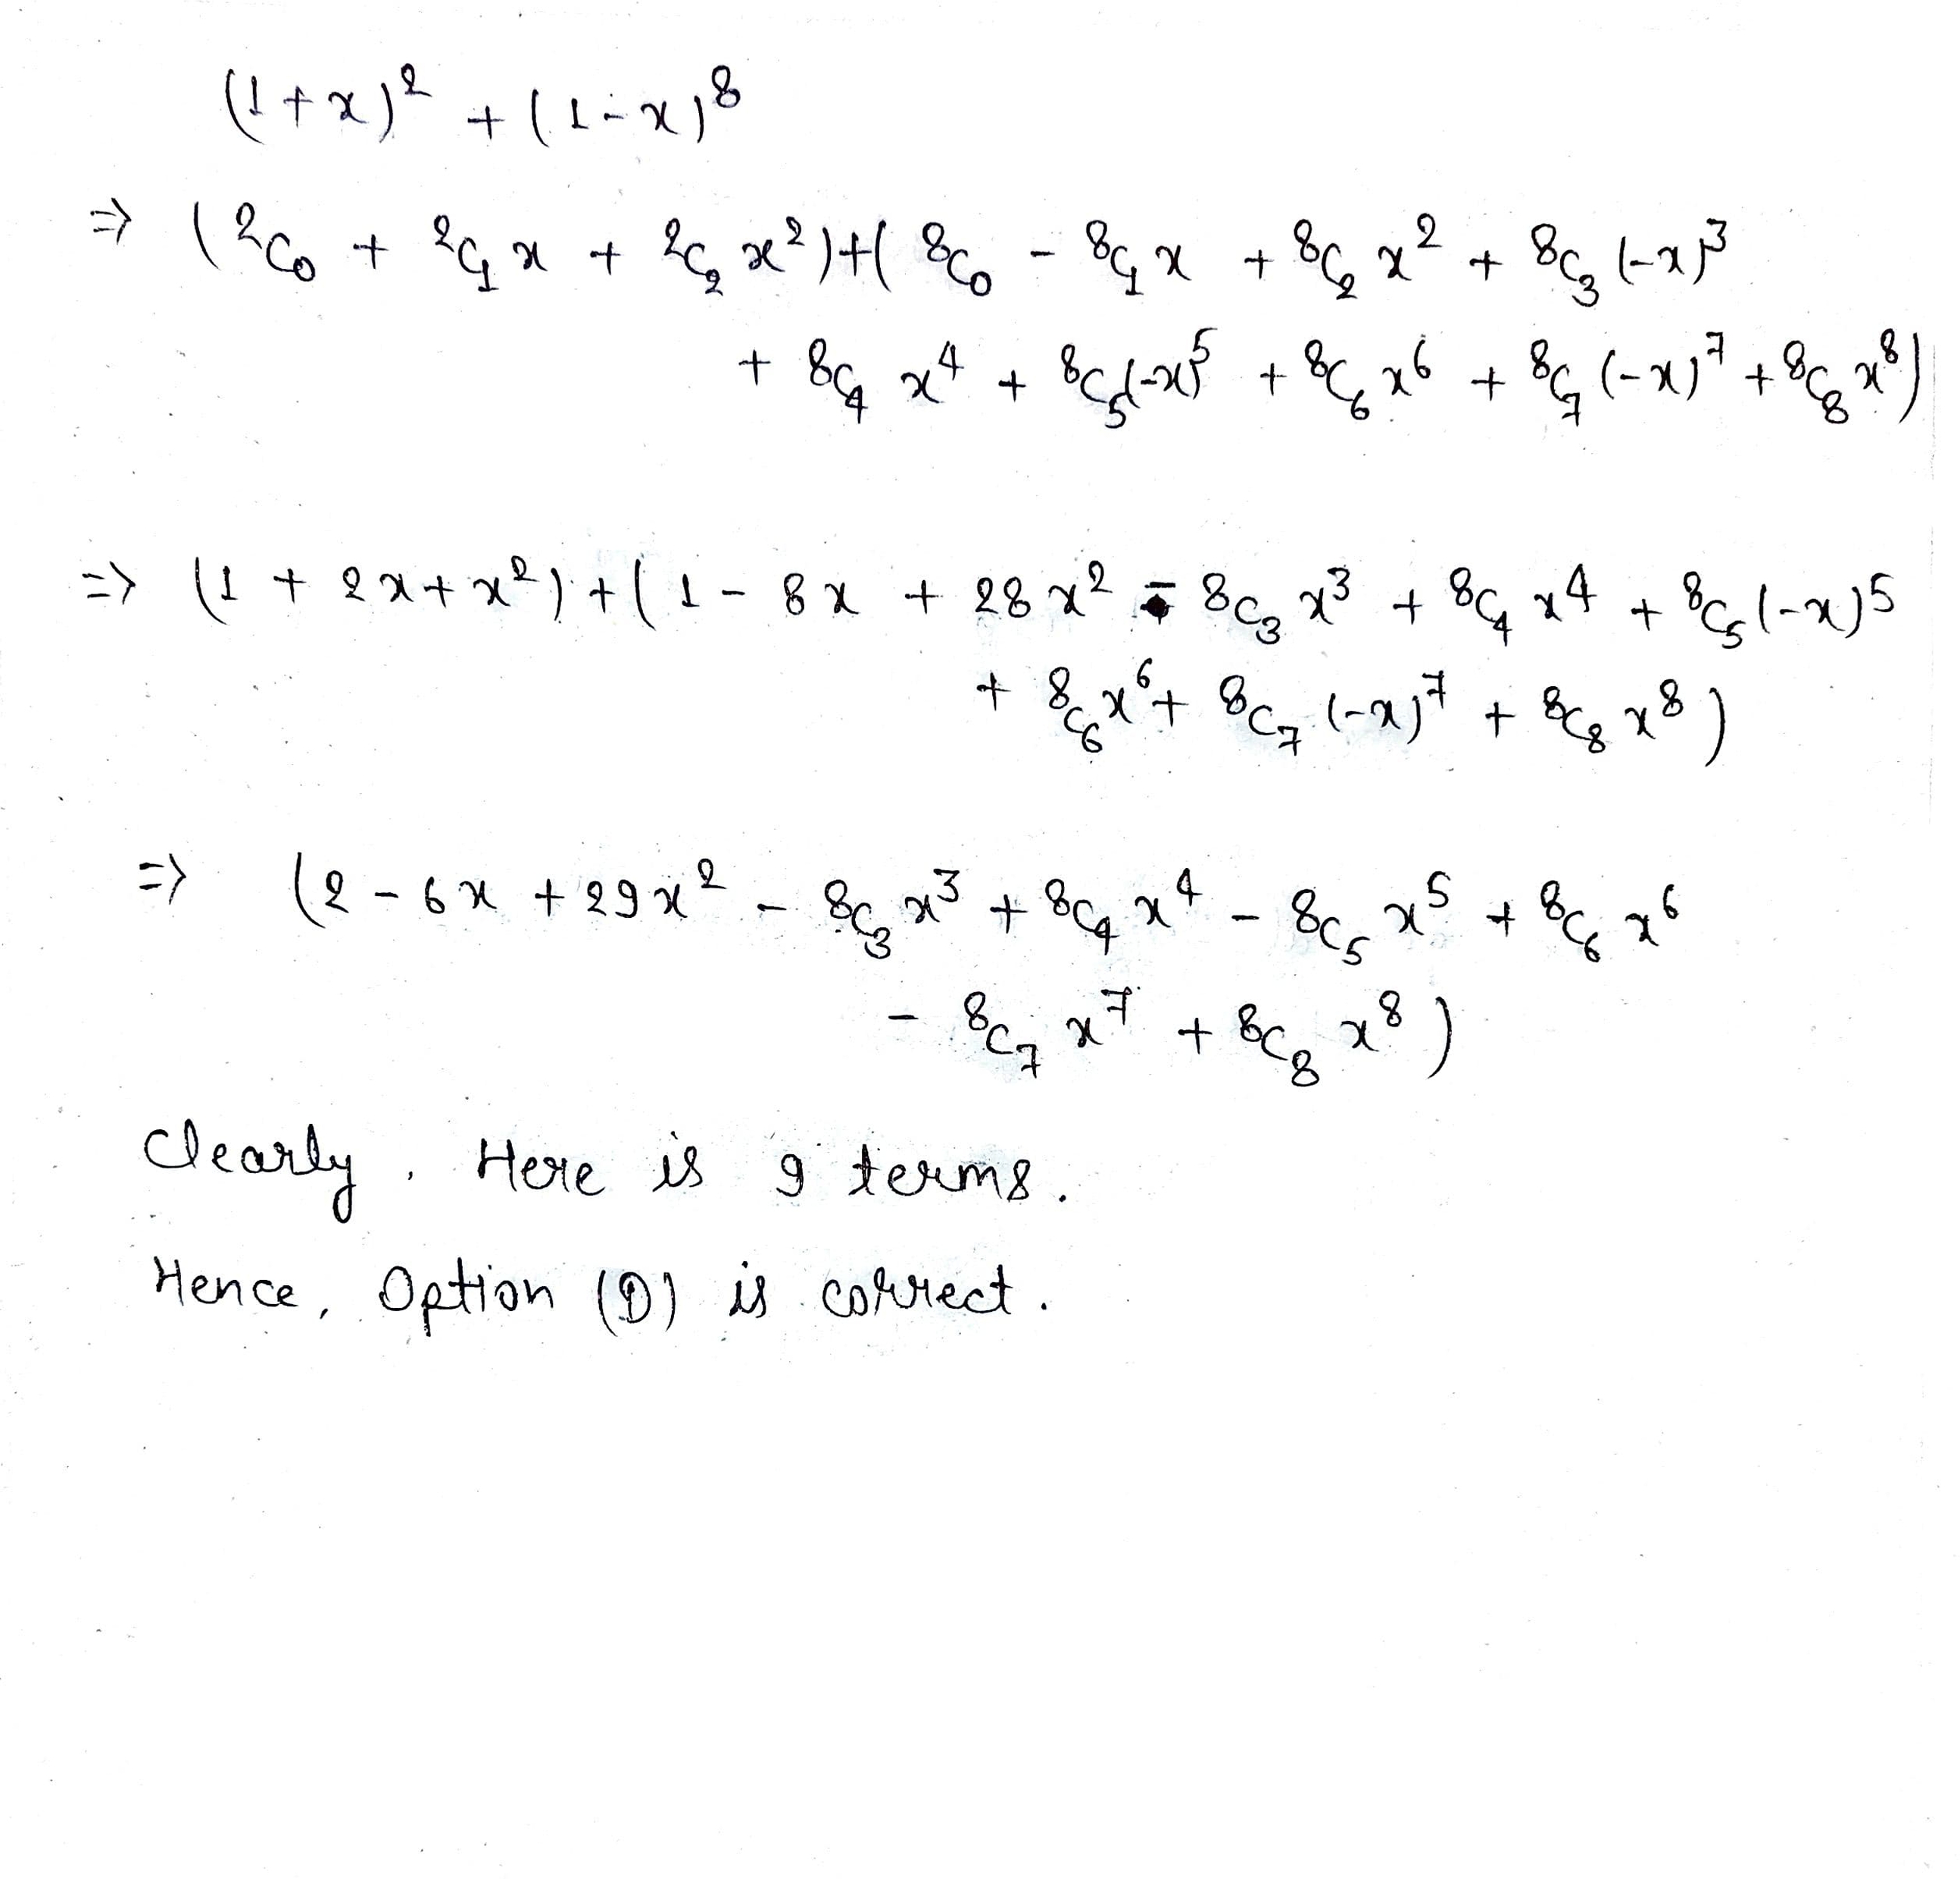 (1+x)² + (1-x)⁸
⇒ (²C₀ + ²C₁ x + ²C₂ x²)+( ⁸C₀ - ⁸C₁ x + ⁸C₂ x² + ⁸C₃ (-x)³
+ ⁸C₄ x⁴ + ⁸C₅(-x)⁵ + ⁸C₆ x⁶ + ⁸C₇ (-x)⁷ + ⁸C₈ x⁸)
⇒ (1 + 2x + x²) + (1 - 8x + 28x² - ⁸C₃ x³ + ⁸C₄ x⁴ + ⁸C₅(-x)⁵
+ ⁸C₆ x⁶ + ⁸C₇ (-x)⁷ + ⁸C₈ x⁸)
⇒ (2 - 6x + 29x² - ⁸C₃ x³ + ⁸C₄ x⁴ - ⁸C₅ x⁵ + ⁸C₆ x⁶
- ⁸C₇ x⁷ + ⁸C₈ x⁸)
Clearly, Here is 9 terms.
Hence, Option (D) is correct.